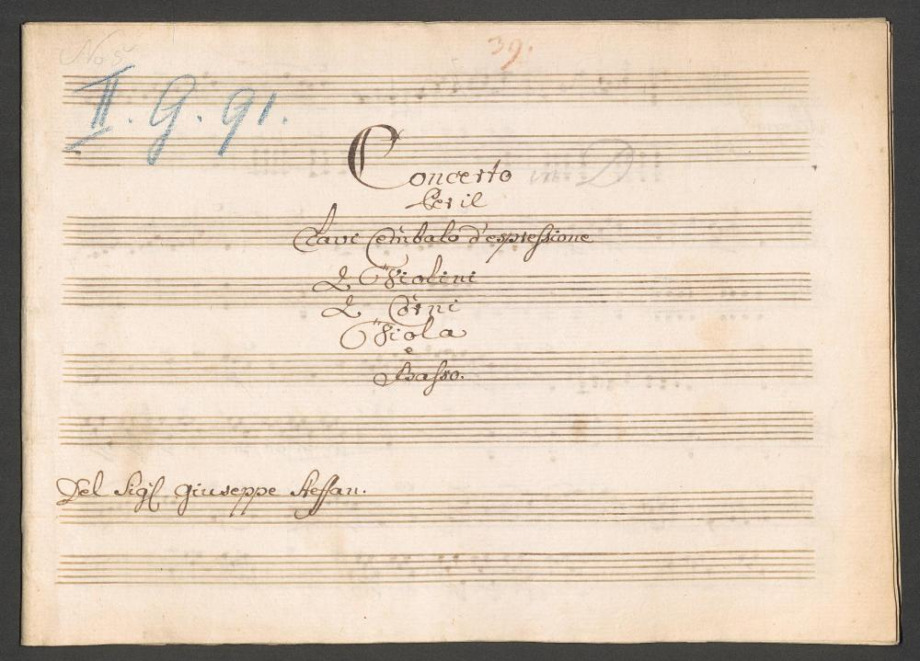 No 5
39.
II. G. 91.
Concerto
Per il
Clavi Cembalo d'espressione
2 Violini
2 Corni
Viola
e
Basso.
Del Sigl Giuseppe Steffan.